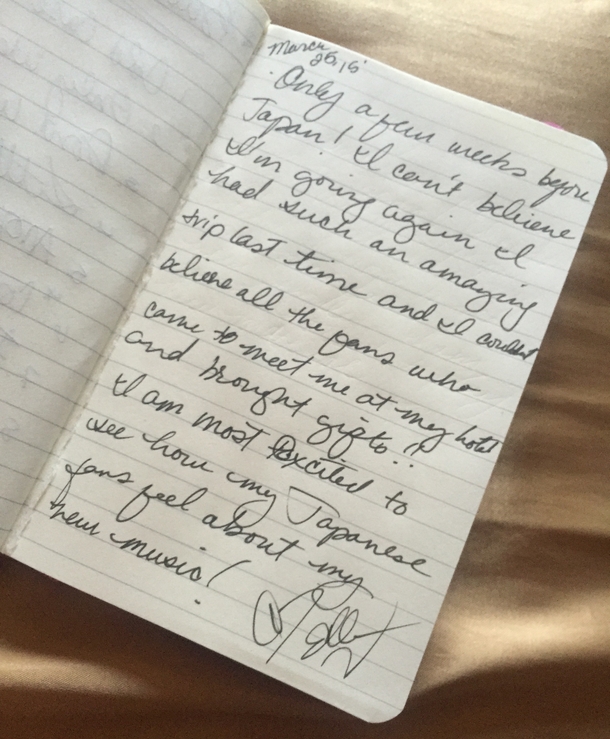 March
26, 15'
Only a few weeks before
Japan! I can't believe
I'm going again I
had such an amazing
trip last time and I couldn't
believe all the fans who
came to meet me at my hotel
and brought gifts!!
I am most Excited to
see how my Japanese
fans feel about my
new music!